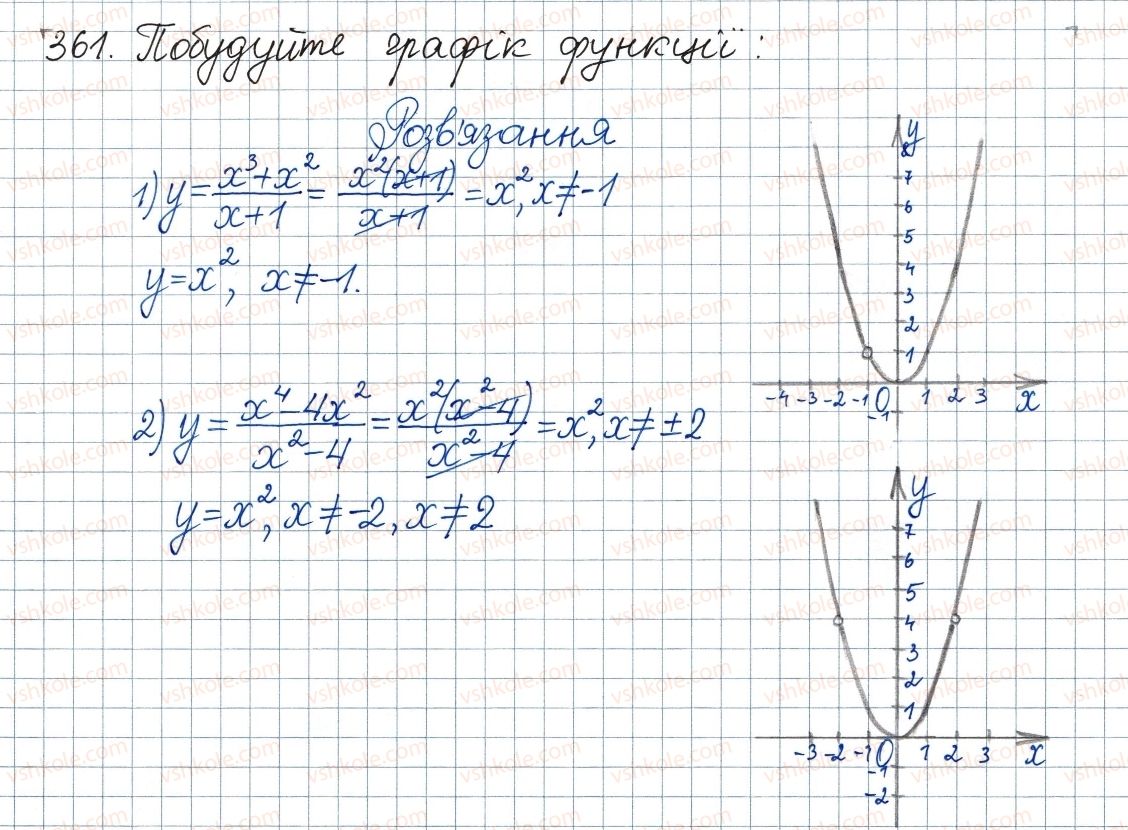 361. Побудуйте графік функції:
Розв'язання
1) y = (x³+x²)/(x+1) = x²(x+1)/(x+1) = x², x ≠ -1
y = x², x ≠ -1.
2) y = (x⁴-4x²)/(x²-4) = x²(x²-4)/(x²-4) = x², x ≠ ±2
y = x², x ≠ -2, x ≠ 2
y
8
7
6
5
4
3
2
1
-4 -3 -2 -1 0 1 2 3 x
-1
y
7
6
5
4
3
2
1
-3 -2 -1 0 1 2 3 x
-1
-2
vshkole.com